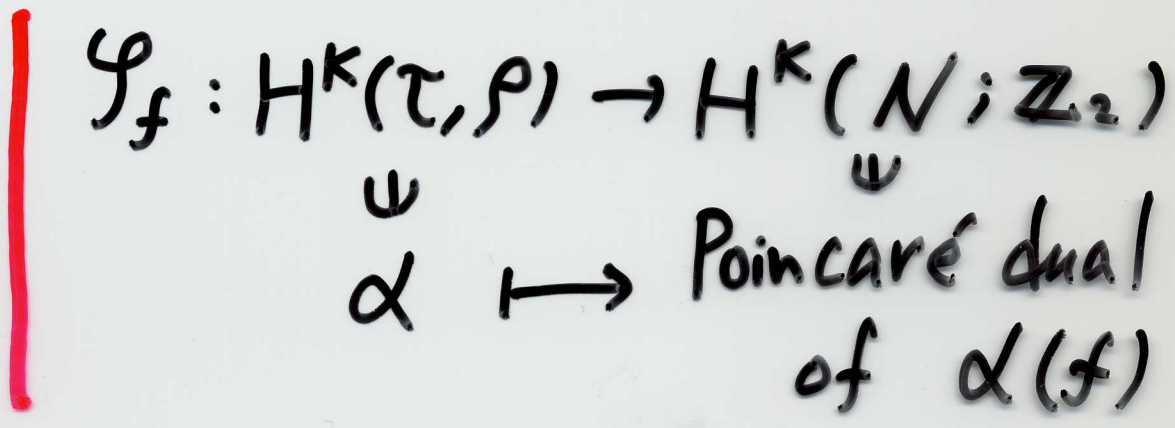 φ_f : H^κ(τ, ρ) → H^κ(N; ℤ₂)
∪| ∪|
α ↦ Poincaré dual
of α(f)